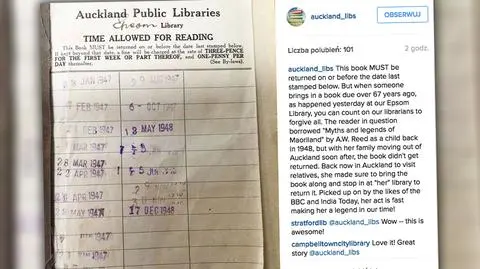 Auckland Public Libraries
Epsom Library
TIME ALLOWED FOR READING
This Book MUST be returned on or before the date last stamped below.
If kept beyond that date, a fine will be charged at the rate of THREE-PENCE
FOR THE FIRST WEEK OR PART THEREOF, AND ONE-PENNY PER
DAY thereafter. (See By-laws).
JAN 1947
FEB 1947
6 - OCT 1947
FEB 1947
18 MAY 1948
MAR 1947
28 MAR 1947
22 APR 1947
APR 1947
MAY 1947
17 DEC 1948
1947
auckland_libs
OBSERWUJ
Liczba polubień: 101
2 godz.
auckland_libs This book MUST be
returned on or before the date last
stamped below. But when someone
brings in a book due over 67 years ago,
as happened yesterday at our Epsom
Library, you can count on our librarians to
forgive all. The reader in question
borrowed "Myths and legends of
Maoriland" by A.W. Reed as a child back
in 1948, but with her family moving out of
Auckland soon after, the book didn't get
returned. Back now in Auckland to visit
relatives, she made sure to bring the
book along and stop in at "her" library to
return it. Picked up on by the likes of the
BBC and India Today, her act is fast
making her a legend in our time!
stratfordlib @auckland_libs Wow -- this is
awesome!
campbelltowncitylibrary Love it! Great
story @auckland_libs